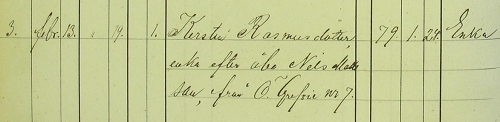 3. febr. 13. " 19. 1. Kerstin Rasmusdotter, 79. 1. 24. Enka
enka efter åbo Nels Matts
son, från Ö. Grefvie nr 7.